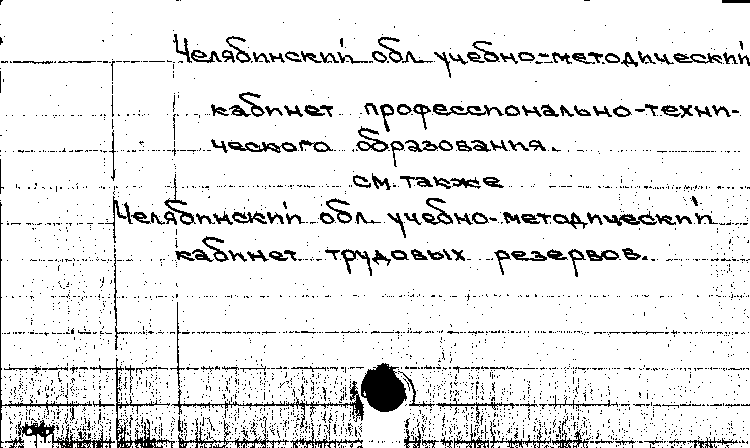 Челябинский обл. учебно-методический
кабинет профессионально-техни-
ческого образования.
см. также
Челябинский обл. учебно-методический
кабинет трудовых резервов.